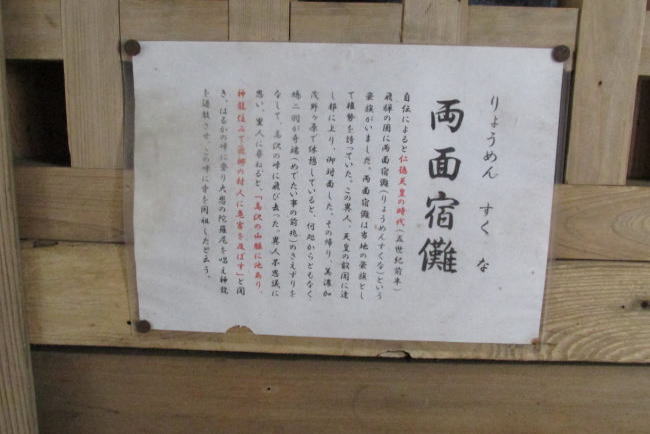 りょうめん すくな
両面宿儺
自伝によると仁徳天皇の時代(五世紀前半)
飛騨の国に両面宿儺(りょうめんすくな)という
豪族がいました。両面宿儺は当地の豪族とし
て権勢を誇っていた。この異人、天皇の叡聞に達
し都に上り、御対面した。その帰り、美濃加
茂野ヶ原で休憩していると、何処からともなく
鳩二羽が奇瑞(めでたい事の前兆)のさえずりを
なして、高沢の峰に飛び去った。異人不思議に
思い、里人に尋ねると、「高沢の山頂に池あり、
神龍住みて近郷の村人に危害を及ぼす」と聞
き、はるかの峰に登り大悲の陀羅尼を唱え神龍
を退散させ、この峰に寺を開祖したと云う。